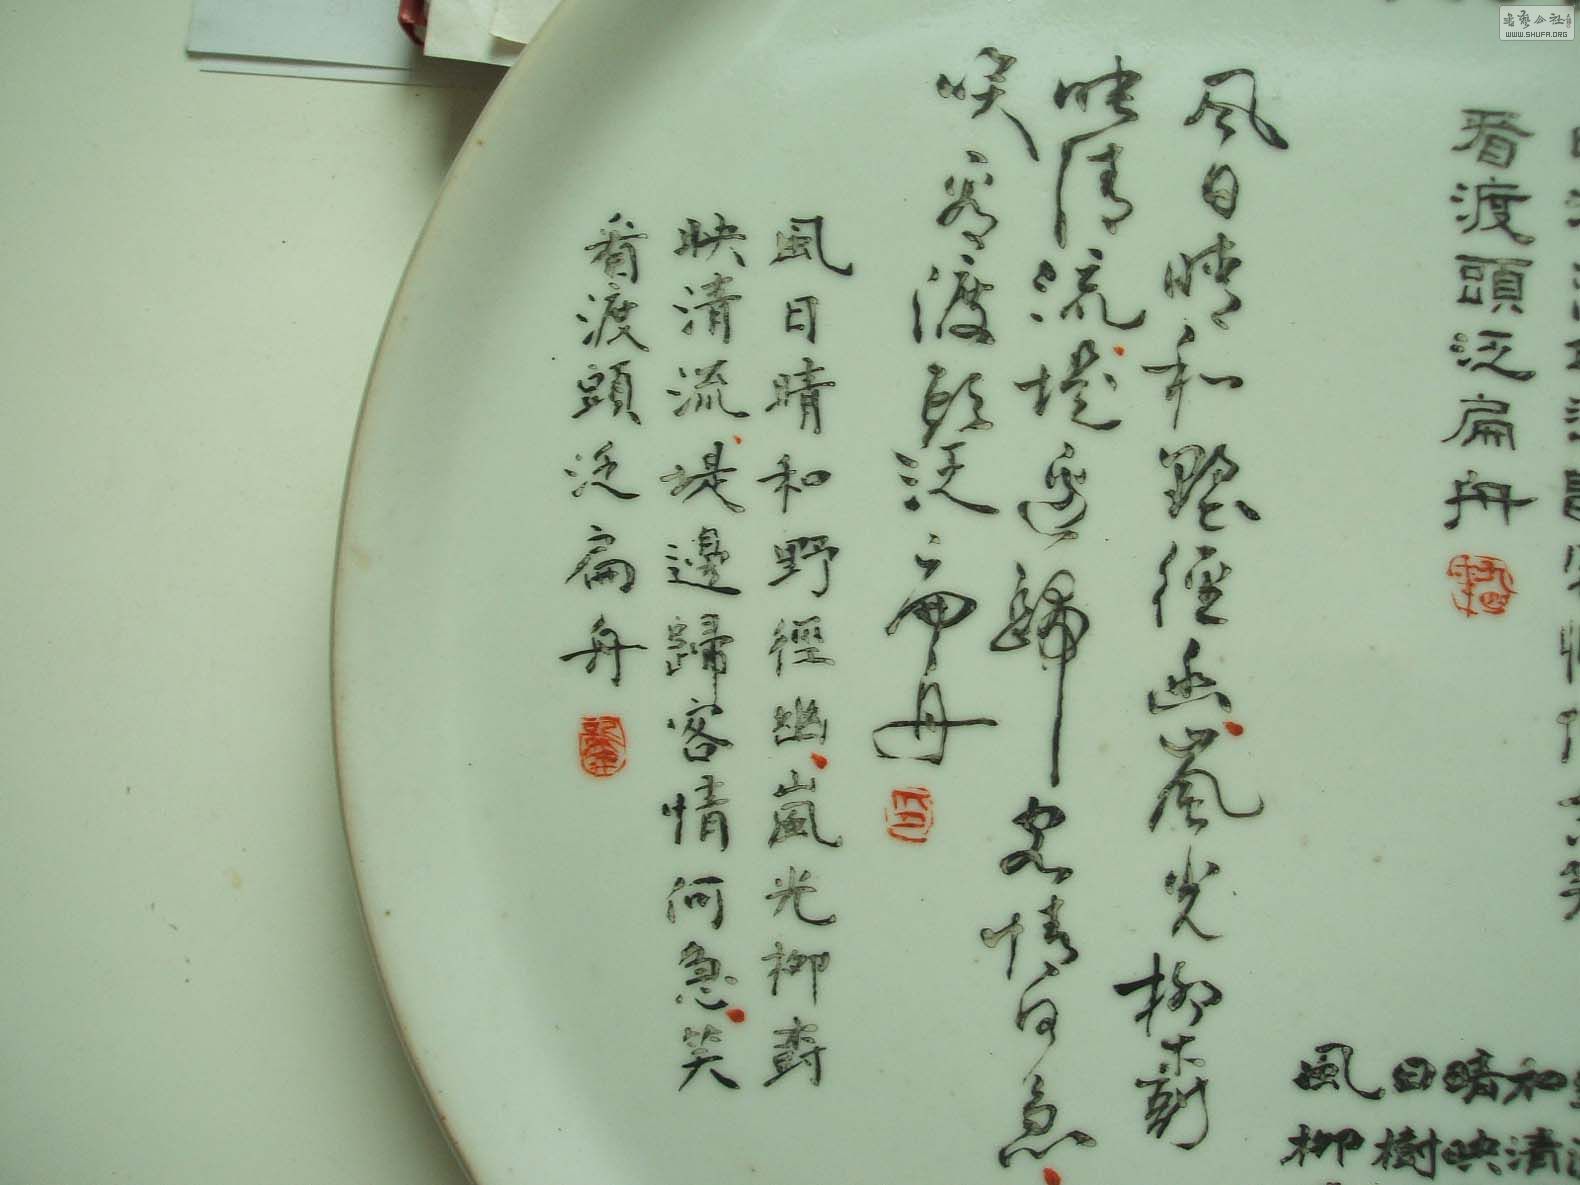 看渡頭泛扁舟
風日晴和野徑幽嵐光柳樹
映清流堤邊歸客情何急
笑看渡頭泛扁舟
風日晴和野徑幽嵐光柳樹
映清流堤邊歸客情何急笑
看渡頭泛扁舟
風日晴和
柳樹映清
WWW.SHUFA.ORG